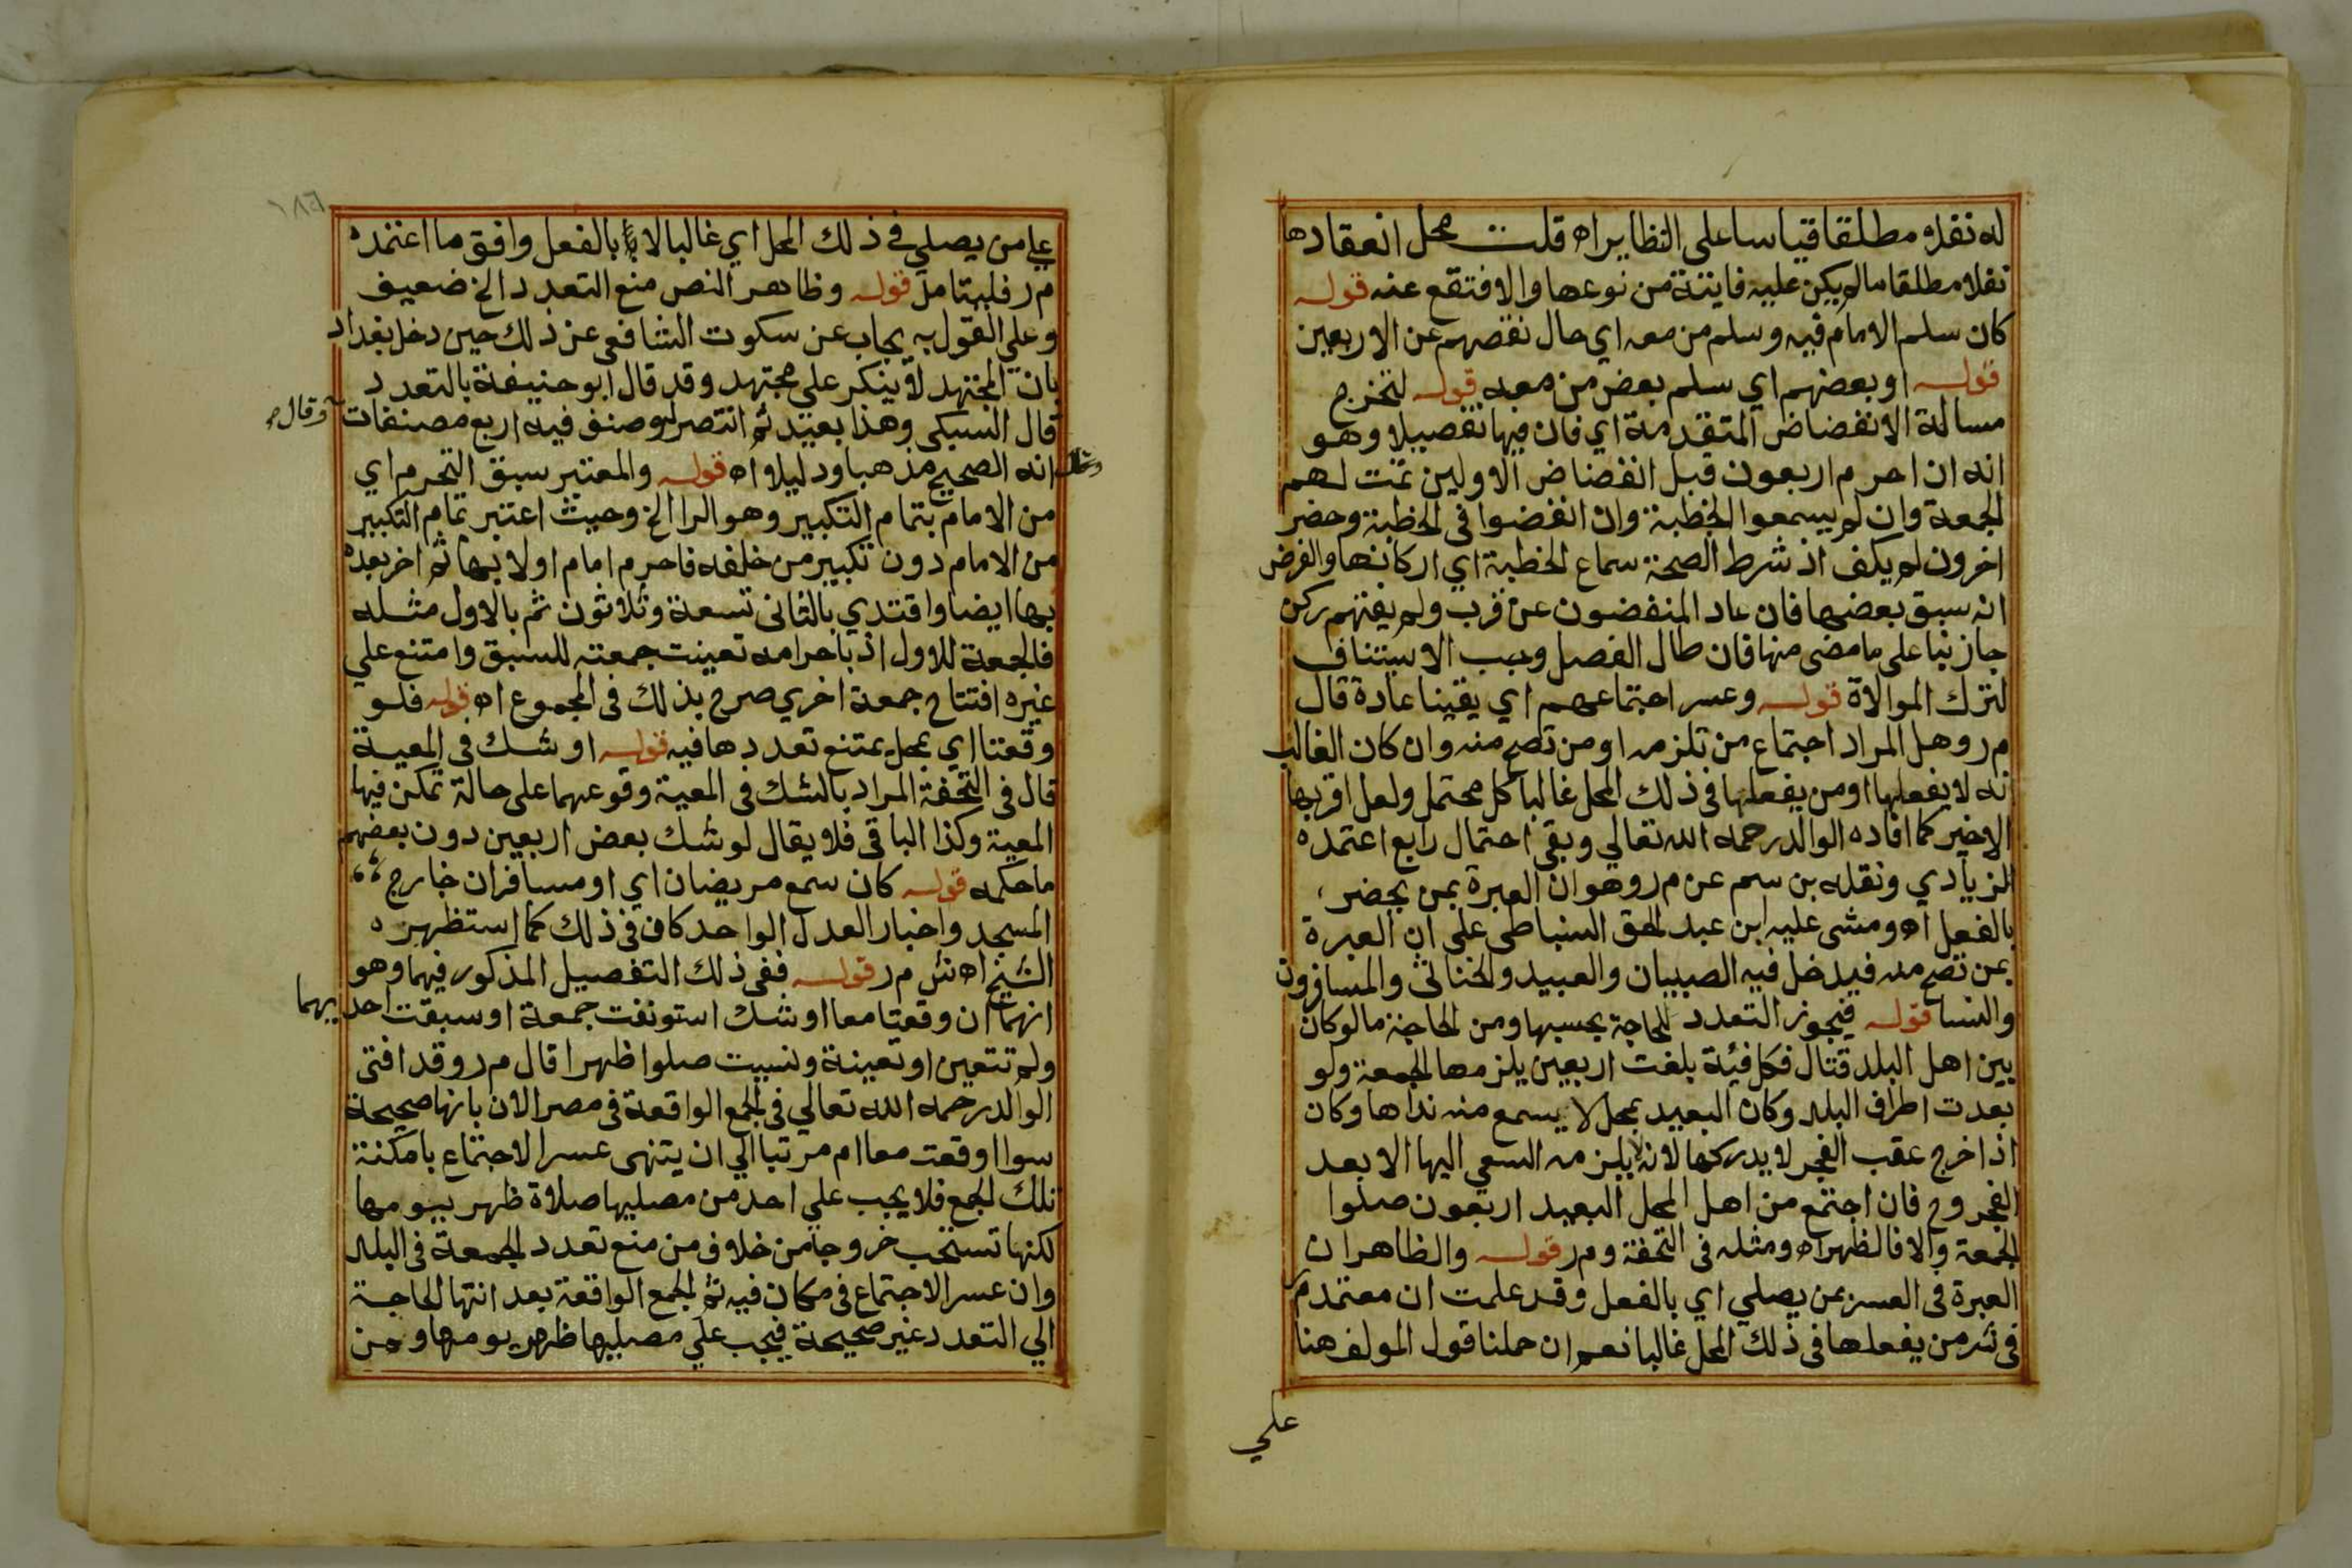 له نفلا مطلقا قياسا على النظاير اه قلت محل انعقادها
نفلا مطلقا ما لم يكن عليه فايتة من نوعها والا فتقع عنه قوله
كان سلم الامام فيه وسلم من معه اي حال نقصهم عن الاربعين
قوله او بعضهم اي سلم بعض من معه قوله لتخرج
مسالة الانفضاض المتقدمة اي فان فيها تفصيلا وهو
انه ان احرم اربعون قبل انفضاض الاولين تمت لهم
الجمعة وان لم يسمعوا الخطبة وان انفضوا في الخطبة وحضر
اخرون لم يكف اذ شرط الصحة سماع الخطبة اي اركانها والفرض
انه سبق بعضها فان عاد المنفضون عن قرب ولم يفتهم ركن
جاز بنا على ما مضى منها فان طال الفصل وجب الاستيناف
لترك الموالاة قوله وعسر اجتماعهم اي يقينا عادة قال
م ر وهل المراد اجتماع من تلزمه او من تصح منه وان كان الغالب
انه لا يفعلها او من يفعلها في ذلك المحل غالبا كل محتمل ولعل اقربها
الاخير كما افاده الوالد رحمه الله تعالي وبقي احتمال رابع اعتمده
الزيادي ونقله بن سم عن م ر وهو ان العبرة بمن يحضر
بالفعل اه ومشى عليه ابن عبد الحق السنباطي على ان العبرة
بمن تصح منه فيدخل فيه الصبيان والعبيد والخناثى والمسافرون
والنسا قوله فيجوز التعدد للحاجة بحسبها ومن الحاجة ما لو كان
بين اهل البلد قتال فكل فئة بلغت اربعين يلزمها الجمعة ولو
بعدت اطراف البلد وكان البعيد بمحل لا يسمع منه نداها وكان
اذا خرج عقب الفجر لا يدركها لانه لا يلزمه السعي اليها الا بعد
الفجر وح فان اجتمع من اهل المحل البعيد اربعون صلوا
الجمعة والا فالظهر اه ومثله في التحفة وم ر قوله والظاهر ان
العبرة في العسر بمن يصلي اي بالفعل وقد علمت ان معتمد م ر
في شر من يفعلها في ذلك المحل غالبا نعم ان حملنا قول المولف هنا
علي
١٨٦
علي من يصلي في ذلك المحل اي غالبا لا بالفعل وافق ما اعتمده
م ر فليتامل قوله وظاهر النص منع التعدد الخ ضعيف
وعلي القول به يجاب عن سكوت الشافعي عن ذلك حين دخل بغداد
بان المجتهد لا ينكر على مجتهد وقد قال ابو حنيفة بالتعدد
قال السبكى وهذا بعيد ثم انتصر له وصنف فيه اربع مصنفات وقال
انه الصحيح مذهبا ودليلا اه قوله والمعتبر سبق التحرم اي
من الامام بتمام التكبير وهو الرا الخ وحيث اعتبر تمام التكبير
من الامام دون تكبير من خلفه فاحرم امام اولا بها ثم اخر بعده
بها ايضا واقتدي بالثاني تسعة وثلاثون ثم بالاول مثله
فالجمعة للاول اذ باحرامه تعينت جمعته للسبق وامتنع علي
غيره افتتاح جمعة اخري صرح بذلك في المجموع اه قوله فلو
وقعتا اي بمحل يمتنع تعددها فيه قوله او شك في المعية
قال في التحفة المراد بالشك في المعية وقوعهما على حالة تمكن فيها
المعية وكذا الباقي فلا يقال لو شك بعض اربعين دون بعضهم
ما حكمه قوله كان سمع مريضان اي او مسافران خارج
المسجد واخبار العدل الواحد كاف في ذلك كما استظهره
الشيخ اه ش م ر قوله ففي ذلك التفصيل المذكور فيهما وهو
انهما ان وقعتا معا او شك استونفت جمعة او سبقت احديهما
ولم تتعين او تعينة ونسيت صلوا ظهرا قال م ر وقد افتى
الوالد رحمه الله تعالي في الجمع الواقعة في مصر الان بانها صحيحة
سوا اوقعت معا ام مرتبا الي ان ينتهى عسر الاجتماع بامكنة
تلك الجمع فلا يجب علي احد من مصليها صلاة ظهر يومها
لكنها تستحب خروجا من خلاف من منع تعدد الجمعة في البلد
وان عسر الاجتماع في مكان فيه ثم الجمع الواقعة بعد انتها الحاجة
الي التعدد غير صحيحة فيجب علي مصليها ظهر يومها ومن